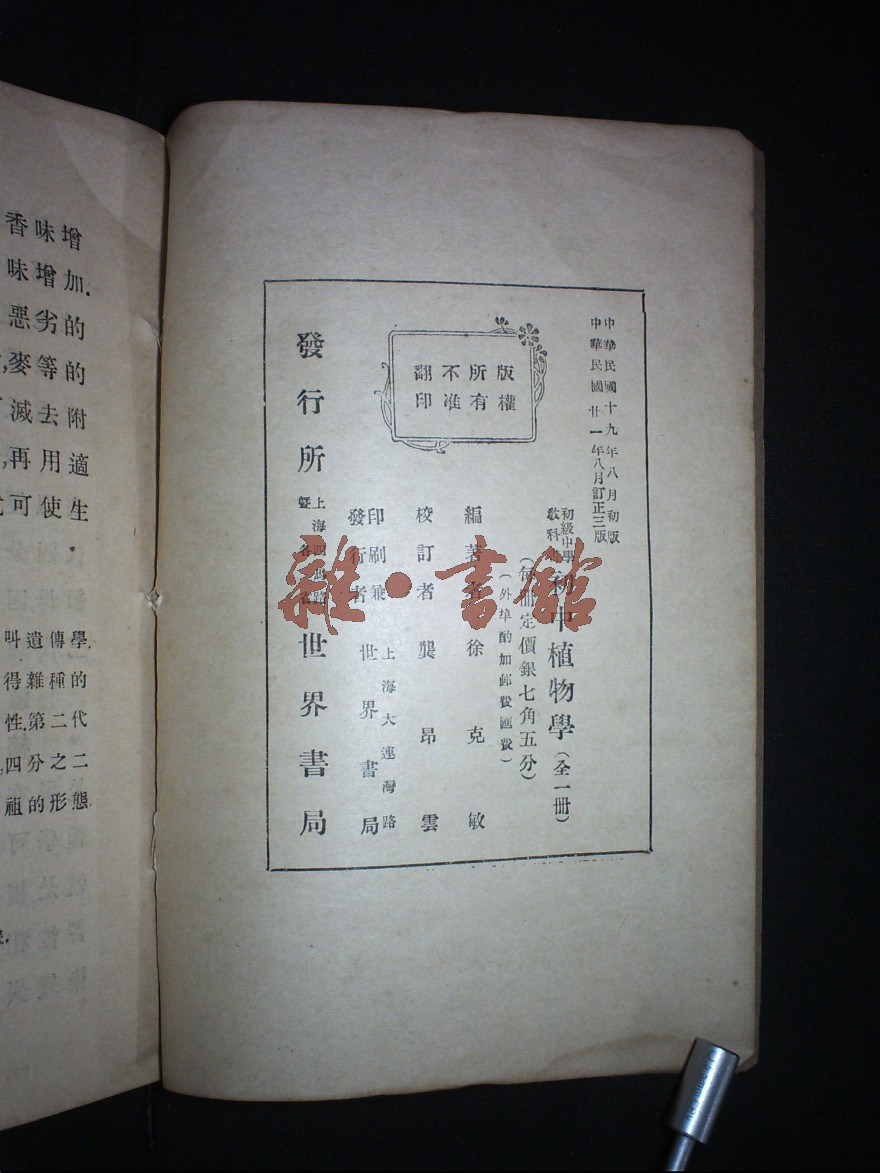 中華民國十九年八月初版
中華民國廿一年八月訂正三版
初級中學
教科書
初中植物學（全一冊）
（每冊定價銀七角五分）
（外埠酌加郵費匯費）
版權
所有
不准
翻印
編著者徐克敏
校訂者龔昂雲
印刷兼
發行者
上海大連灣路
世界書局
發行所
上海四馬路
暨各省
世界書局
雜·書館
增加的的附適生
味增劣等去用使
香味惡麥滅再可
學.的代二態
傳種二之形
遺雜第分的
叫得性.四祖